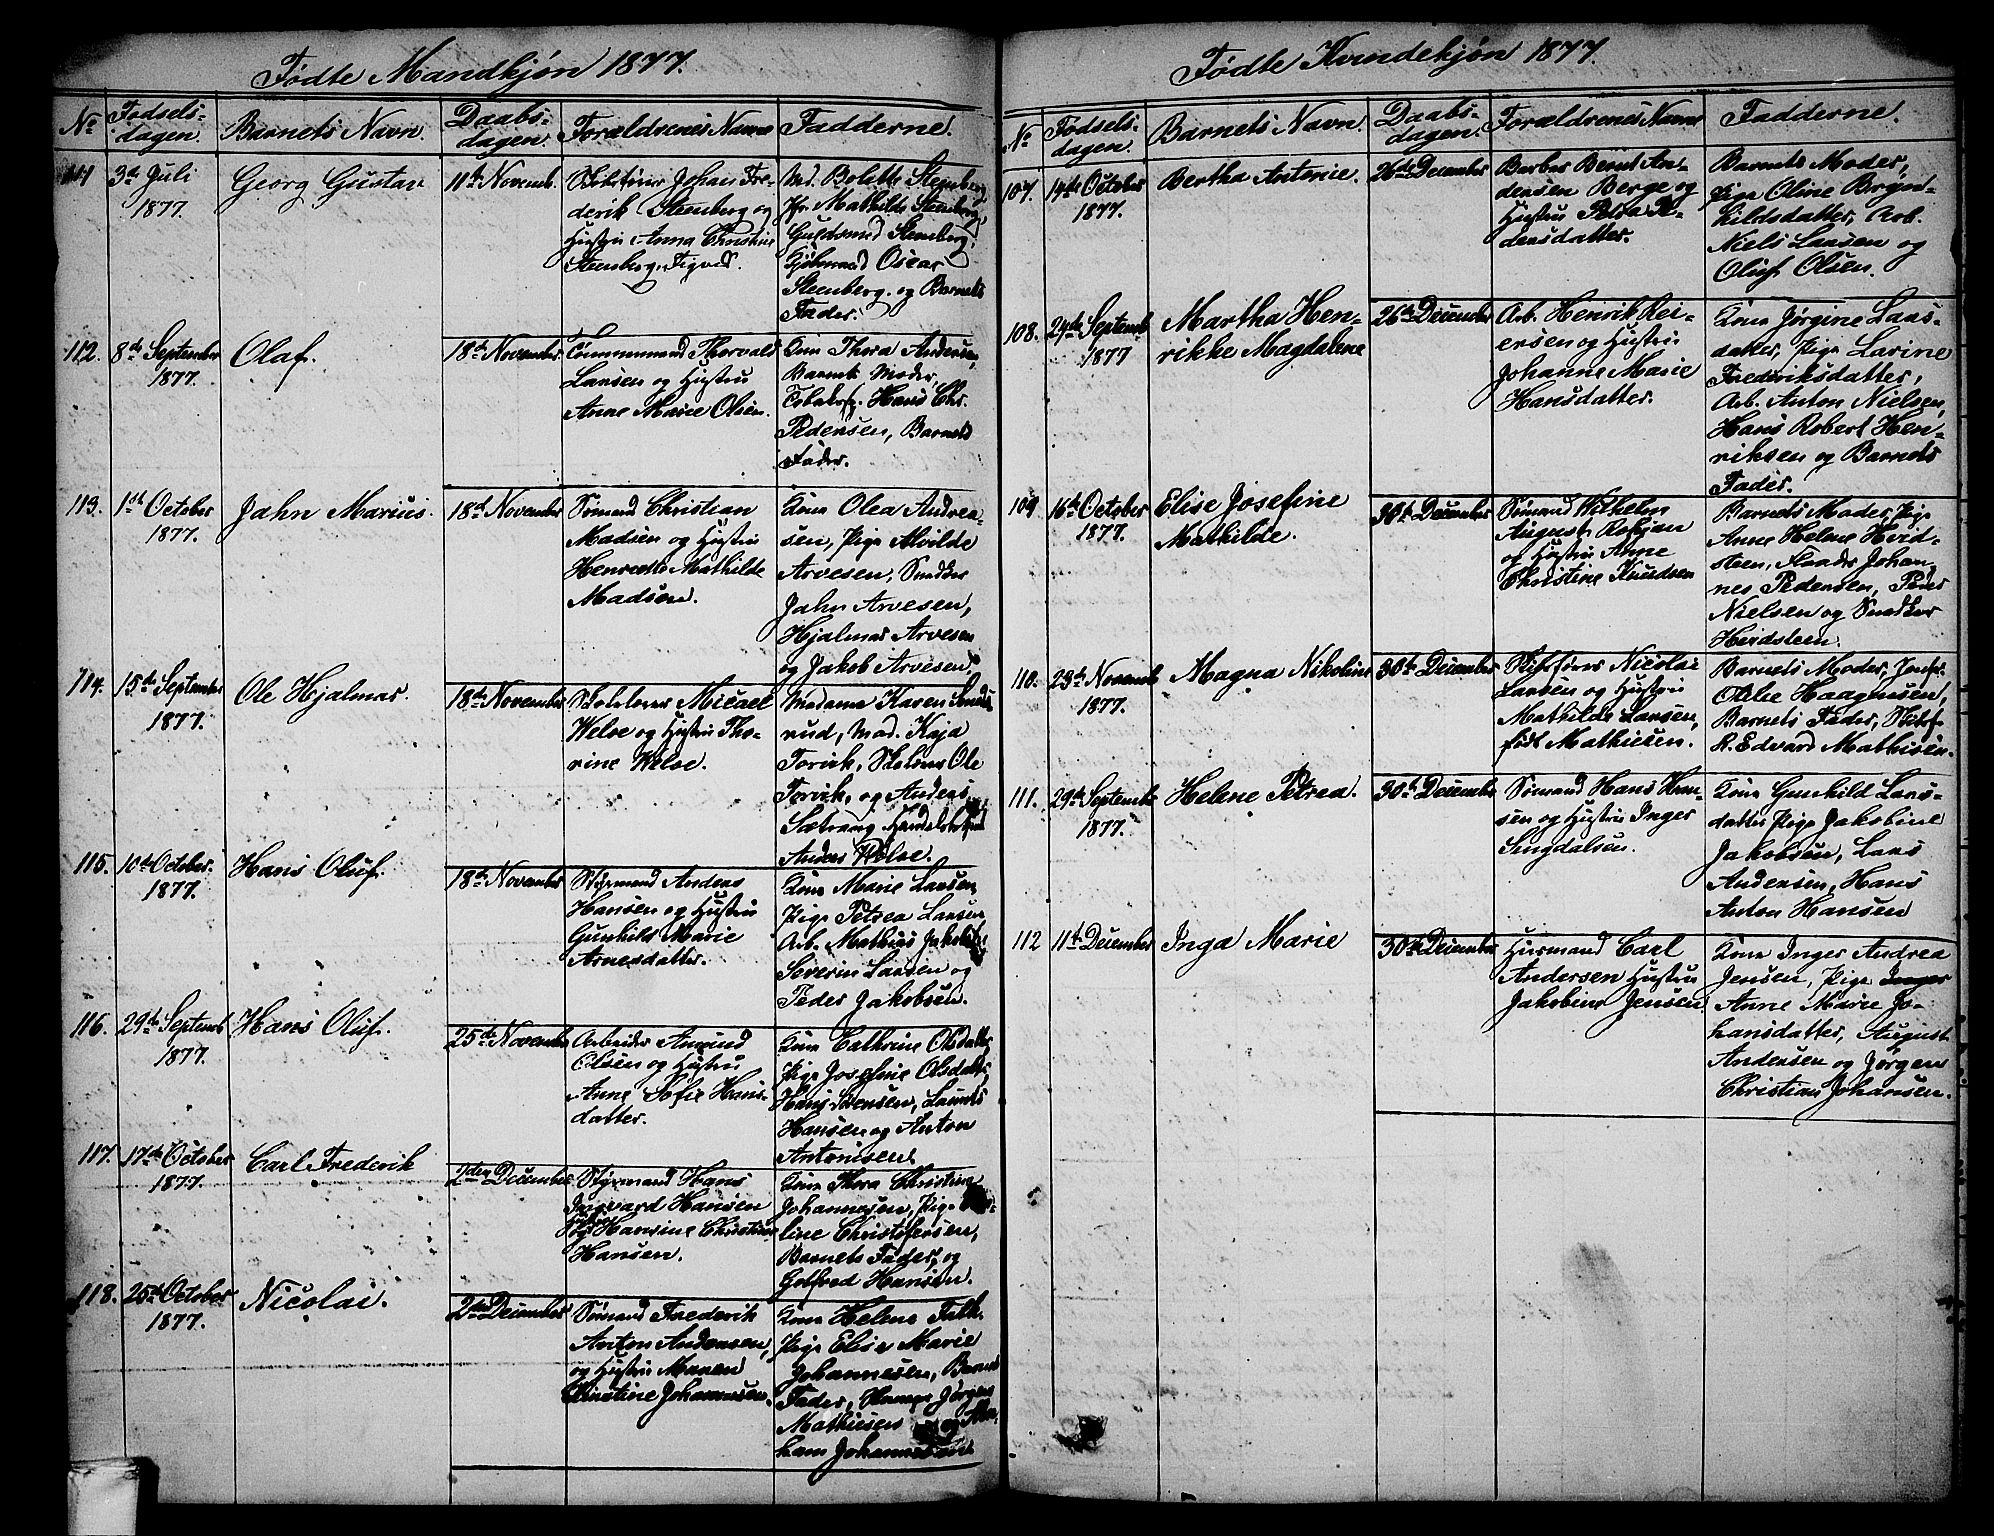 Fødte Mandkjøn 1877.
No
Fødsels-
dagen.
Barnets Navn.
Daabs-
dagen.
Forældrenes Navne
Fadderne.
111
3de Juli
1877.
Georg Gustav
11te Novemb.
Johan Fre-
derik Steenberg og
Hustru Anna Christine
Steenberg,
Md. Bolette Steenberg,
Jfr. Mathilde Steenberg,
Guldsmed Steenberg,
Oscar
Steenberg og Barnets
Fader.
112.
8de September
1877.
Olaf.
18de November
Thorvald
Larsen og Hustru
Anne Marie Olsen.
Kone Thora Andersen,
Barnets Moder,
Hans Chr.
Pedersen, Barnets
Fader.
113.
1ste October
1877.
Jahn Marius.
18de November
Sømand Christian
Madsen og Hustru
Henriette Mathilde
Madsen.
Kone Olea Andrea-
sen, Pige Alvilde
Arvesen, Snedker
Jahn Arvesen,
Hjalmar Arvesen
og Jakob Arvesen.
114.
15de September
1877.
Ole Hjalmar.
18de November
Micael
Welve og Hustru Tho-
rine Welve.
Madame Karen
rud, Mad. Kaja
Torvik, Ole
Torvik, og Anders
Sætrang
Anders Welve.
115.
10de October.
1877.
Hans Oluf.
18de November
Styrmand Anders
Hansen og Hustru
Gunhild Marie
Arnesdatter.
Kone Marie Larsen,
Pige Petrea Larsen
Arb. Mathias
Severin Larsen og
Peder Jakobsen.
116.
29de Septemb
1877.
Hans Oluf.
25de November
Arbeider Amund
Olsen og Hustru
Anne Sofie Hans-
datter.
Kone Cathrine Olsdatter,
Pige Josefine Olsdatter,
Hans Svensen, Laurits
Hansen og Anton
Antonisen.
117.
17de October
1877.
Carl Frederik
2den December
Styrmand Hans
Ingvard Hansen
og Hansine Christine
Hansen.
Kone Thora Christine
Johannesen, Pige
line Christofersen,
Barnets Fader, og
Gotfred Hansen.
118.
25de October
1877.
Nicolai.
2den December
Sømand Frederik
Anton Andersen,
og Hustru Maren
Christine Johannesen.
Kone Helene Falk
Pige Elise Marie
Johannesen, Barnets
Fader, Jørgen
Mathiesen og
Johannesen
Fødte Kvindekjøn 1877.
No
Fødsels-
dagen.
Barnets Navn.
Daabs-
dagen.
Forældrenes Navne
Fadderne.
107.
14de October
1877.
Bertha Antonie.
26de December
Barber Bernt An-
dersen Berge og
Hustru Petra Pe-
dersdatter.
Barnets Moder,
Pige Oline Bryn-
hildsdatter, Arb.
Niels Larsen og
Oluf Olsen.
108.
24de Septemb
1877
Martha Hen-
rikke Magdalene
26de December
Arb. Henrik Rei-
ersen og Hustru
Johanne Marie
Hansdatter.
Kone Jørgine Lars-
datter, Pige Lavine
Frederiksdatter,
Arb. Anton Nielsen,
Hans Robert Hen-
riksen og Barnets
Fader.
109
16de October
1877.
Elise Josefine
Mathilde.
30de December
Sømand Wilhelm
August
og Hustru Anne
Christine Knudsen
Barnets Moder, Pige
Anne Helene Hvid-
steen, Johan-
nes Pedersen, Peder
Nielsen og Snedker
Hvidsteen.
110.
23de Novemb
1877.
Magna Nikoline
30de December
Skibsfører Nicolai
Larsen og Hustru
Mathilde Larsen,
født Mathiesen.
Barnets Moder, Jomfr.
Haagensen,
Barnets Fader, Skibsf.
R. Edvard Mathisen.
111.
29de Septemb
1877.
Helene Petrea.
30de December
Sømand Hans Han-
sen og Hustru Inger
Smgdalsen.
Kone Gunhild Lars-
datter Pige Jakobine
Jakobsen, Lars
Andersen, Hans
Anton Hansen
112
11te December
Inga Marie
30de December
Huusmand Carl
Andersen Hustru
Jakobine Jensen
Kone Inger Andrea
Jensen, Pige Inger
Anne Marie Jo-
hansdatter, August
Andersen og Jørgen
Christian Johansen.